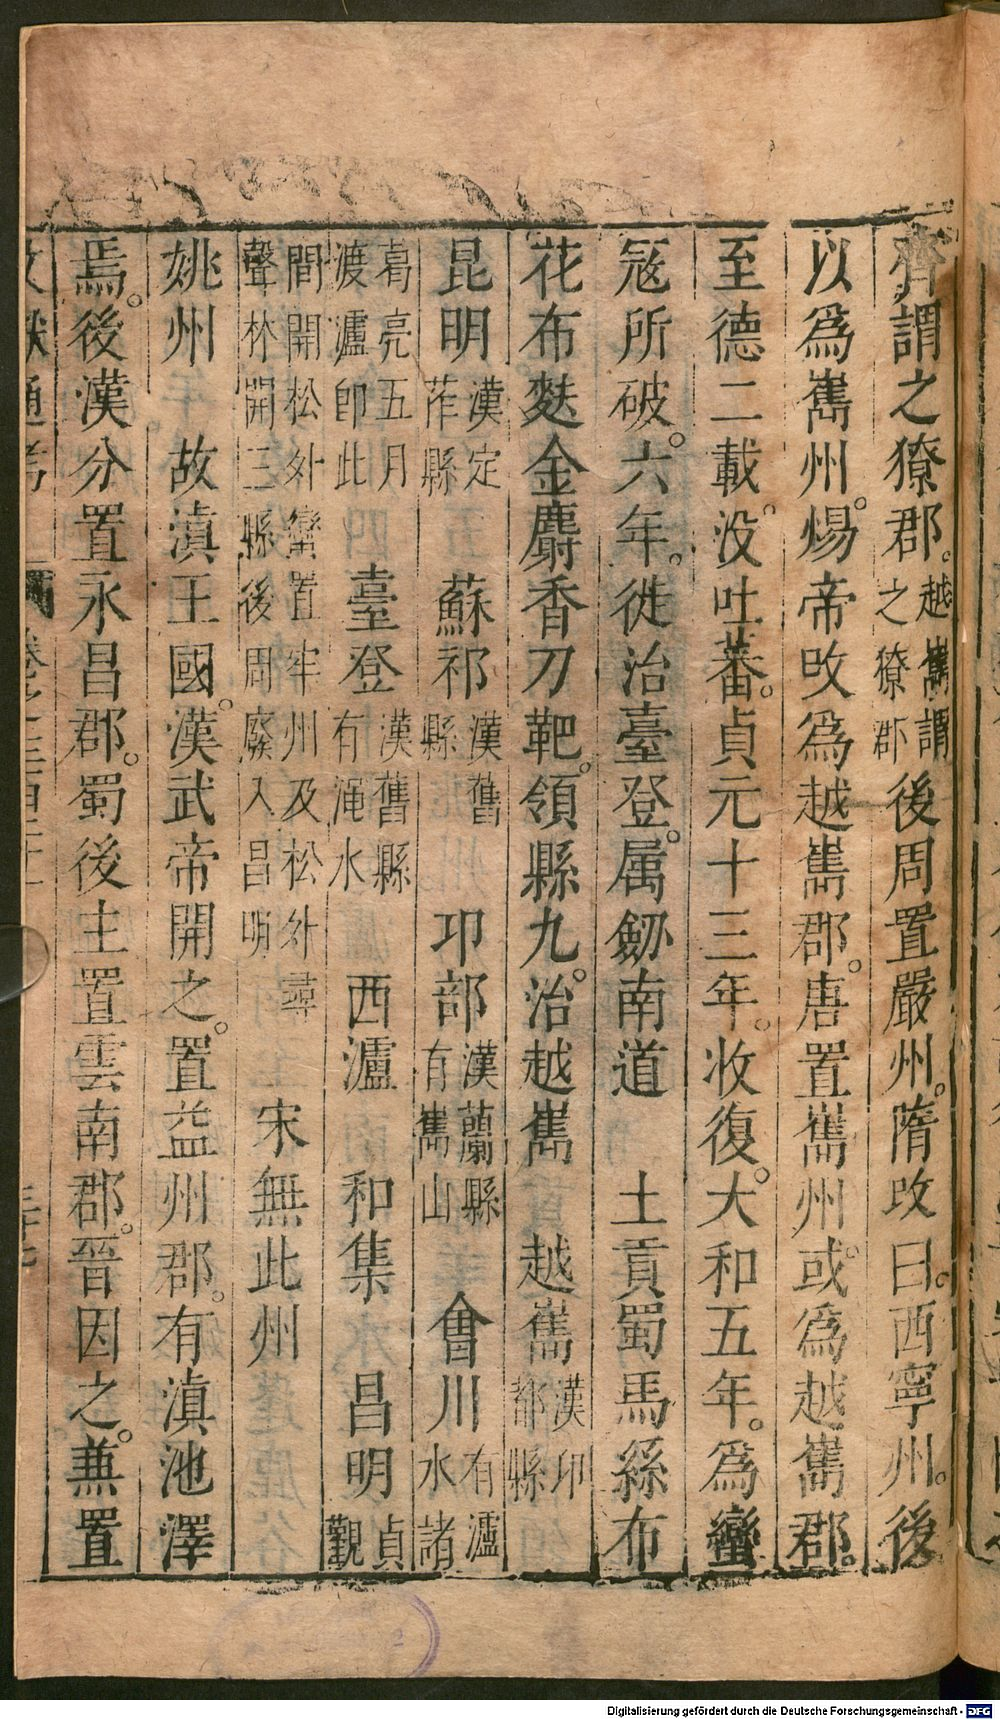 齊謂之獠郡。越嶲謂之獠郡後周置嚴州。隋改曰。西寧州。後
以為嶲州。煬帝改為越嶲郡。唐置嶲州。或為越嶲郡。
至德二載。没吐蕃。貞元十三年。收復。大和五年。為蠻
冦所破。六年。徙治臺登。属劒南道　土貢蜀馬絲布
花布麩金麝香刀靶。領縣九。治越嶲　越嶲漢卭都縣
昆明漢定莋縣　蘇祁漢舊縣　卭部漢蘭縣有嶲山　會川有瀘水諸
葛亮五月渡瀘即此　臺登漢舊縣有渑水　西瀘　和集　昌明貞觀
間開松外蠻置牢州及松外尋聲林開三縣後周廢入昌明　宋無此州
姚州　故滇王國。漢武帝開之。置益州郡。有滇池澤
焉。後漢分置永昌郡。蜀後主置雲南郡。晉因之。兼置
文獻通考